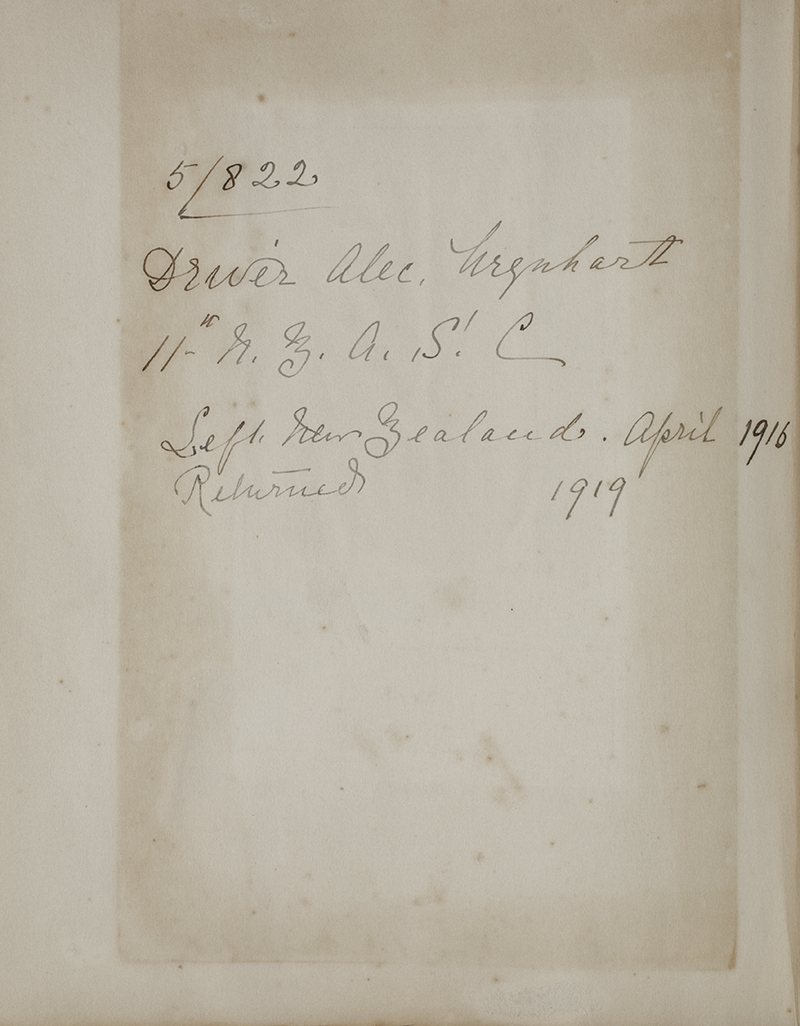 5/822
Driver Alec. Urquhart
11th N. Z. A. S. C
Left New Zealand. April 1916
Returned 1919